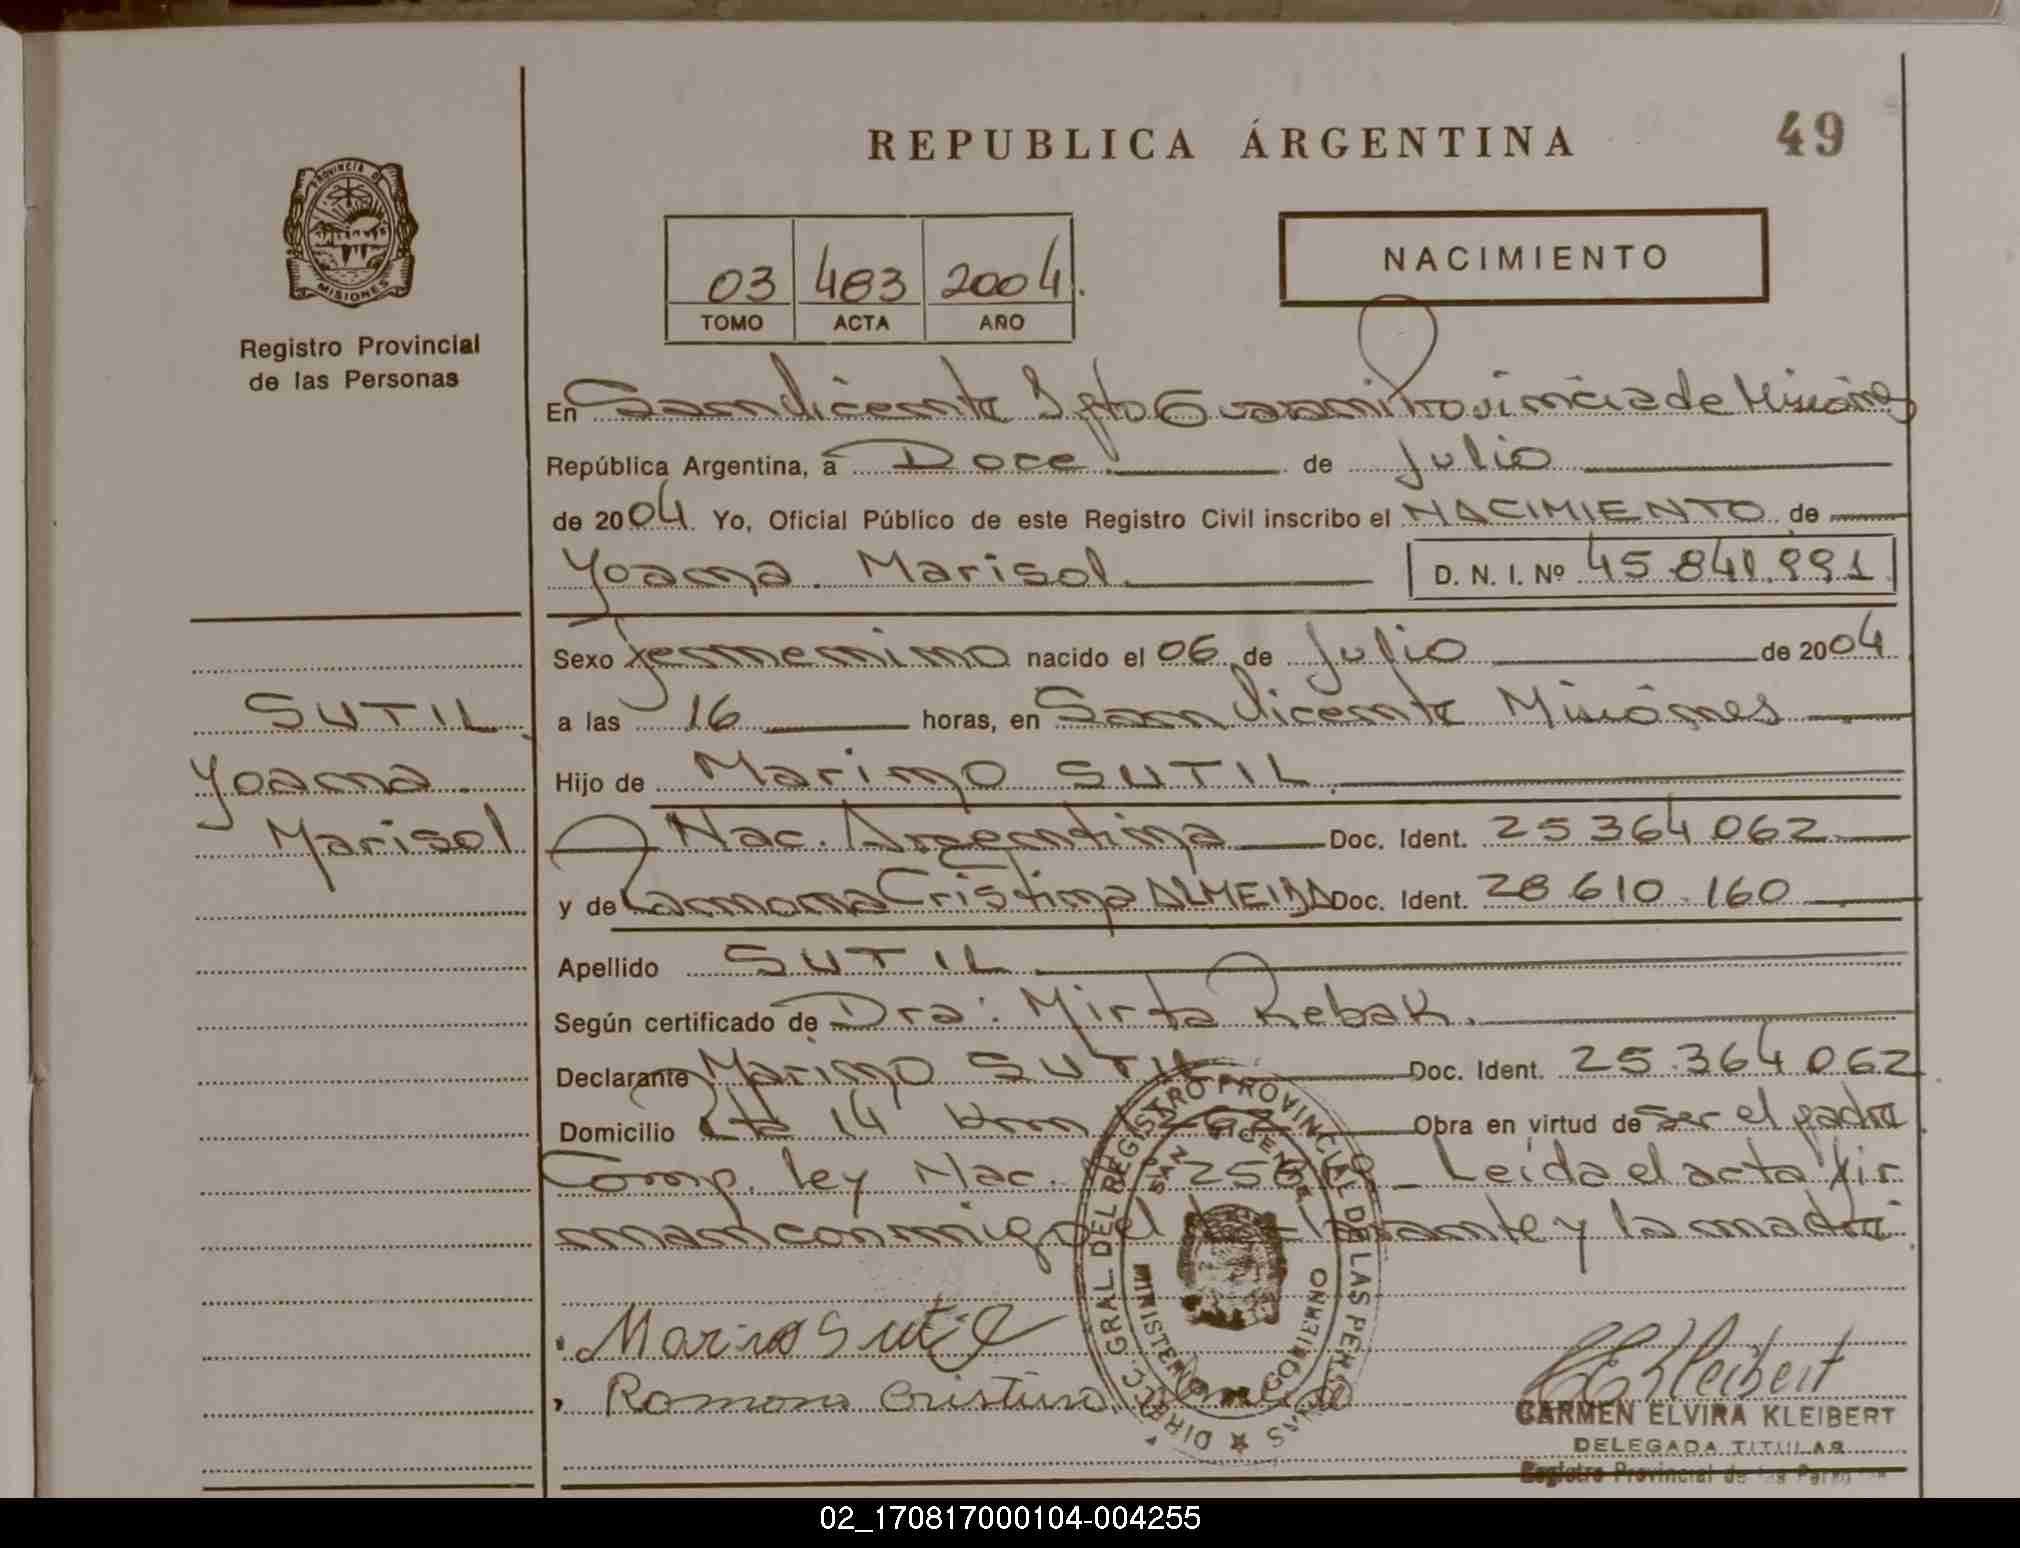 REPUBLICA ÁRGENTINA
49
PROVINCIA D
MISIONES
Registro Provincial
de las Personas
03 483 2004.
TOMO ACTA AÑO
NACIMIENTO
En San Vicente Dpto Guarani Provincia de Misiones
República Argentina, a Doce de Julio
de 2004. Yo, Oficial Público de este Registro Civil inscribo el NACIMIENTO de
Yoana Marisol D. N. I. Nº 45.841.991
Sexo femenino nacido el 06 de Julio de 2004
a las 16 horas, en San Vicente Misiones
Hijo de Marino SUTIL
Nac. Argentina Doc. Ident. 25364062
y de Ramona Cristina ALMEIDA Doc. Ident. 28.610.160
Apellido SUTIL
Según certificado de Dra: Mirta Rebak.
Declarante Marino SUTIL Doc. Ident. 25.364.062
Domicilio Rta 14 Km 1262 Obra en virtud de ser el padre
Comp. ley Nac. Leída el acta fir
man conmigo el declarante y la madre
SUTIL
Yoana
Marisol
Marino Sutil
Ramona Cristina Almeida
DIRECC. GRAL. DEL REGISTRO PROVINCIAL DE LAS PERSONAS
SAN VICENTE
MINISTERIO DE GOBIERNO
CEKleibert
CARMEN ELVIRA KLEIBERT
DELEGADA TITULAR
Registro Provincial de las Personas
02_170817000104-004255